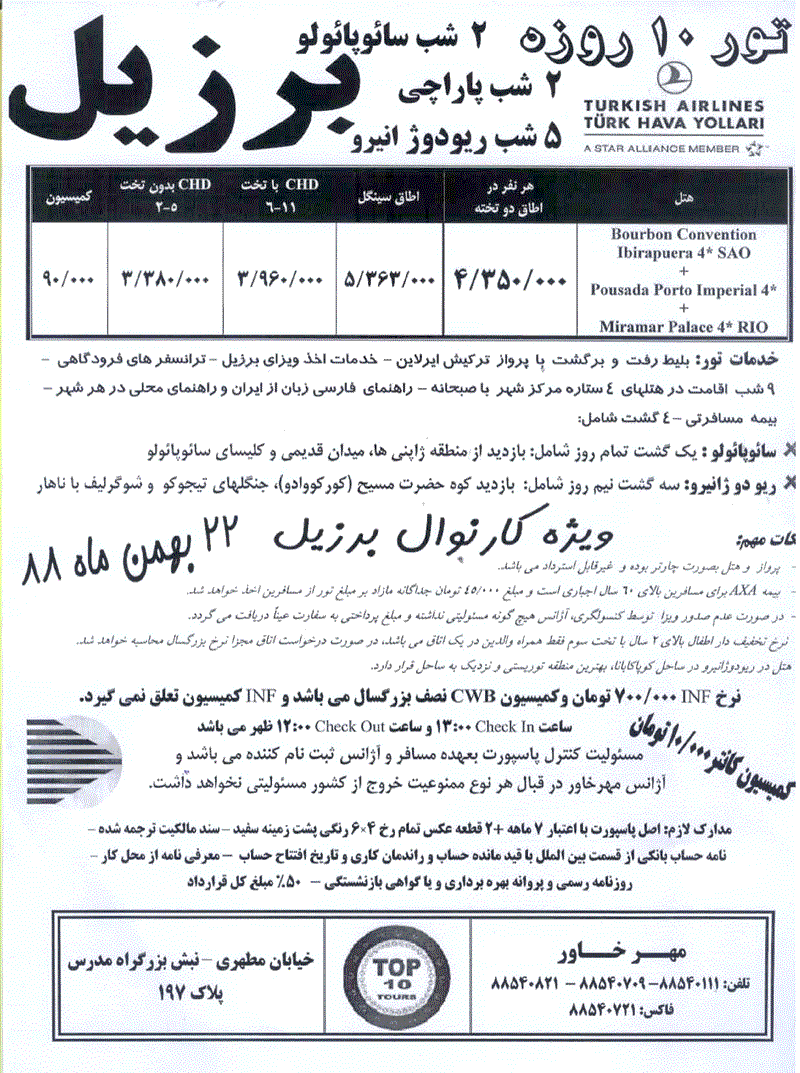 تور ۱۰ روزه
برزیل
۲ شب سائوپائولو
۲ شب پاراچی
۵ شب ریودوژ انیرو
TURKISH AIRLINES
TÜRK HAVA YOLLARI
A STAR ALLIANCE MEMBER
هتل
هر نفر در اطاق دو تخته
اطاق سینگل
CHD با تخت ۶-۱۱
CHD بدون تخت ۲-۵
کمیسیون
Bourbon Convention
Ibirapuera 4* SAO
+
Pousada Porto Imperial 4*
+
Miramar Palace 4* RIO
۴/۳۵۰/۰۰۰
۵/۳۶۳/۰۰۰
۳/۹۶۰/۰۰۰
۳/۳۸۰/۰۰۰
۹۰/۰۰۰
خدمات تور: بلیط رفت و برگشت با پرواز ترکیش ایرلاین – خدمات اخذ ویزای برزیل – ترانسفر های فرودگاهی –
۹ شب اقامت در هتلهای ٤ ستاره مرکز شهر با صبحانه – راهنمای فارسی زبان از ایران و راهنمای محلی در هر شهر –
بیمه مسافرتی – ٤ گشت شامل:
سائوپائولو : یک گشت تمام روز شامل: بازدید از منطقه ژاپنی ها، میدان قدیمی و کلیسای سائوپائولو
ریو دو ژانیرو: سه گشت نیم روز شامل: بازدید کوه حضرت مسیح (کورکووادو)، جنگلهای تیجوکو و شوگرلیف با ناهار
ویژه کارنوال برزیل ۲۲ بهمن ماه ۸۸
کات مهم:
- پرواز و هتل بصورت چارتر بوده و غیرقابل استرداد می باشد.
- بیمه AXA برای مسافرین بالای ۶۰ سال اجباری است و مبلغ ۴۵/۰۰۰ تومان جداگانه مازاد بر مبلغ تور از مسافرین اخذ خواهد شد.
- در صورت عدم صدور ویزا توسط کنسولگری، آژانس هیچ گونه مسئولیتی نداشته و مبلغ پرداختی به سفارت عیناً دریافت می گردد.
نرخ تخفیف دار اطفال بالای ۲ سال با تخت سوم فقط همراه والدین در یک اتاق می باشد، در صورت درخواست اتاق مجزا نرخ بزرگسال محاسبه خواهد شد.
هتل در ریودوژانیرو در ساحل کوپاکابانا، بهترین منطقه توریستی و نزدیک به ساحل قرار دارد.
نرخ INF ۷۰۰/۰۰۰ تومان و کمیسیون CWB نصف بزرگسال می باشد و INF کمیسیون تعلق نمی گیرد.
ساعت Check In ۱۳:۰۰ و ساعت Check Out ۱۲:۰۰ ظهر می باشد
کمیسیون کانتر ۱۰/۰۰۰ تومان
مسئولیت کنترل پاسپورت بعهده مسافر و آژانس ثبت نام کننده می باشد و
آژانس مهرخاور در قبال هر نوع ممنوعیت خروج از کشور مسئولیتی نخواهد داشت.
مدارک لازم: اصل پاسپورت با اعتبار ۷ ماهه +۲ قطعه عکس تمام رخ ۴×۶ رنگی پشت زمینه سفید – سند مالکیت ترجمه شده –
نامه حساب بانکی از قسمت بین الملل با قید مانده حساب و راندمان کاری و تاریخ افتتاح حساب – معرفی نامه از محل کار –
روزنامه رسمی و پروانه بهره برداری و یا گواهی بازنشستگی – ۵۰٪ مبلغ کل قرارداد
مهر خاور
تلفن: ۸۸۵۴۰۱۱۱– ۸۸۵۴۰۷۰۹ – ۸۸۵۴۰۸۲۱
فاکس: ۸۸۵۴۰۷۲۱
TOP
10
TOURS
خیابان مطهری – نبش بزرگراه مدرس
پلاک ۱۹۷